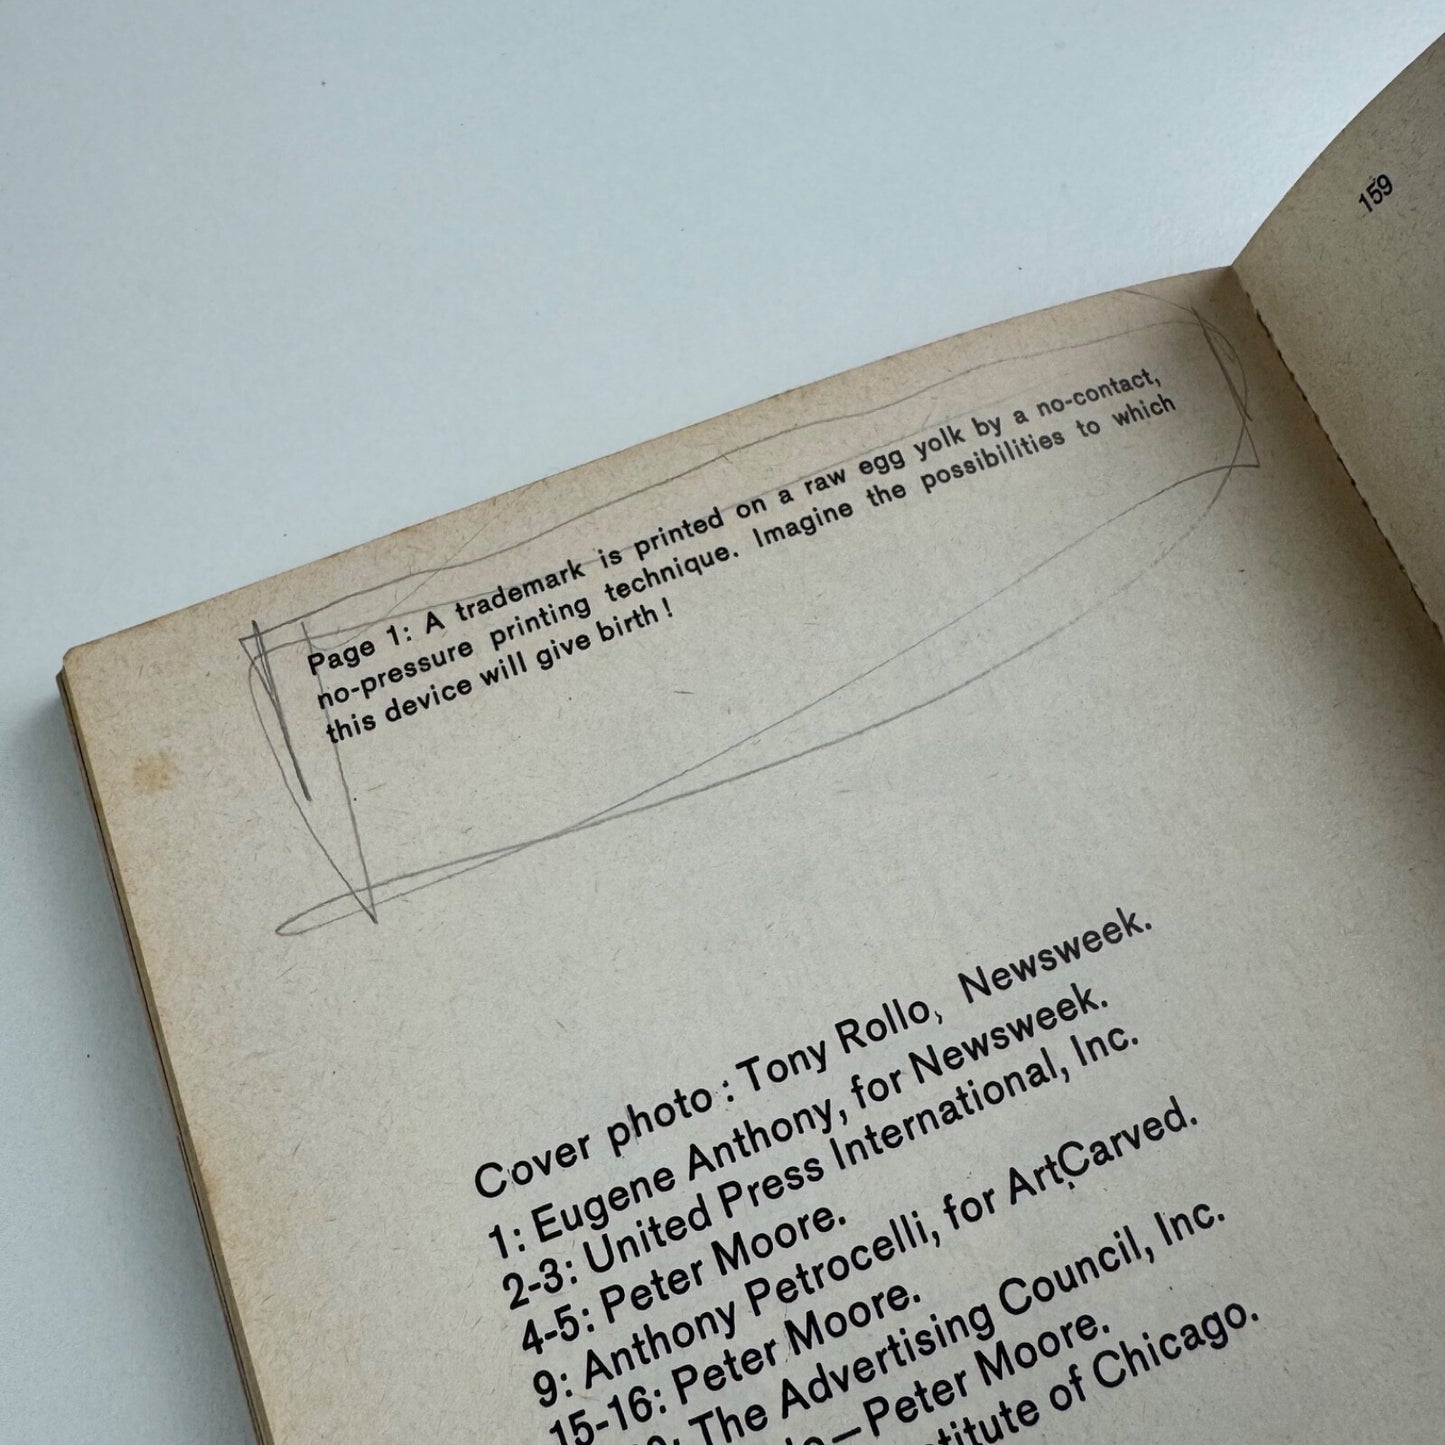 159
Page 1: A trademark is printed on a raw egg yolk by a no-contact,
no-pressure printing technique. Imagine the possibilities to which
this device will give birth!
Cover photo: Tony Rollo, Newsweek.
1: Eugene Anthony, for Newsweek.
2-3: United Press International, Inc.
4-5: Peter Moore.
9: Anthony Petrocelli, for ArtCarved.
15-16: Peter Moore.
The Advertising Council, Inc.
—Peter Moore.
of Chicago.